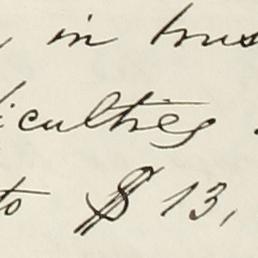 in trus
iculties
to $ 13,